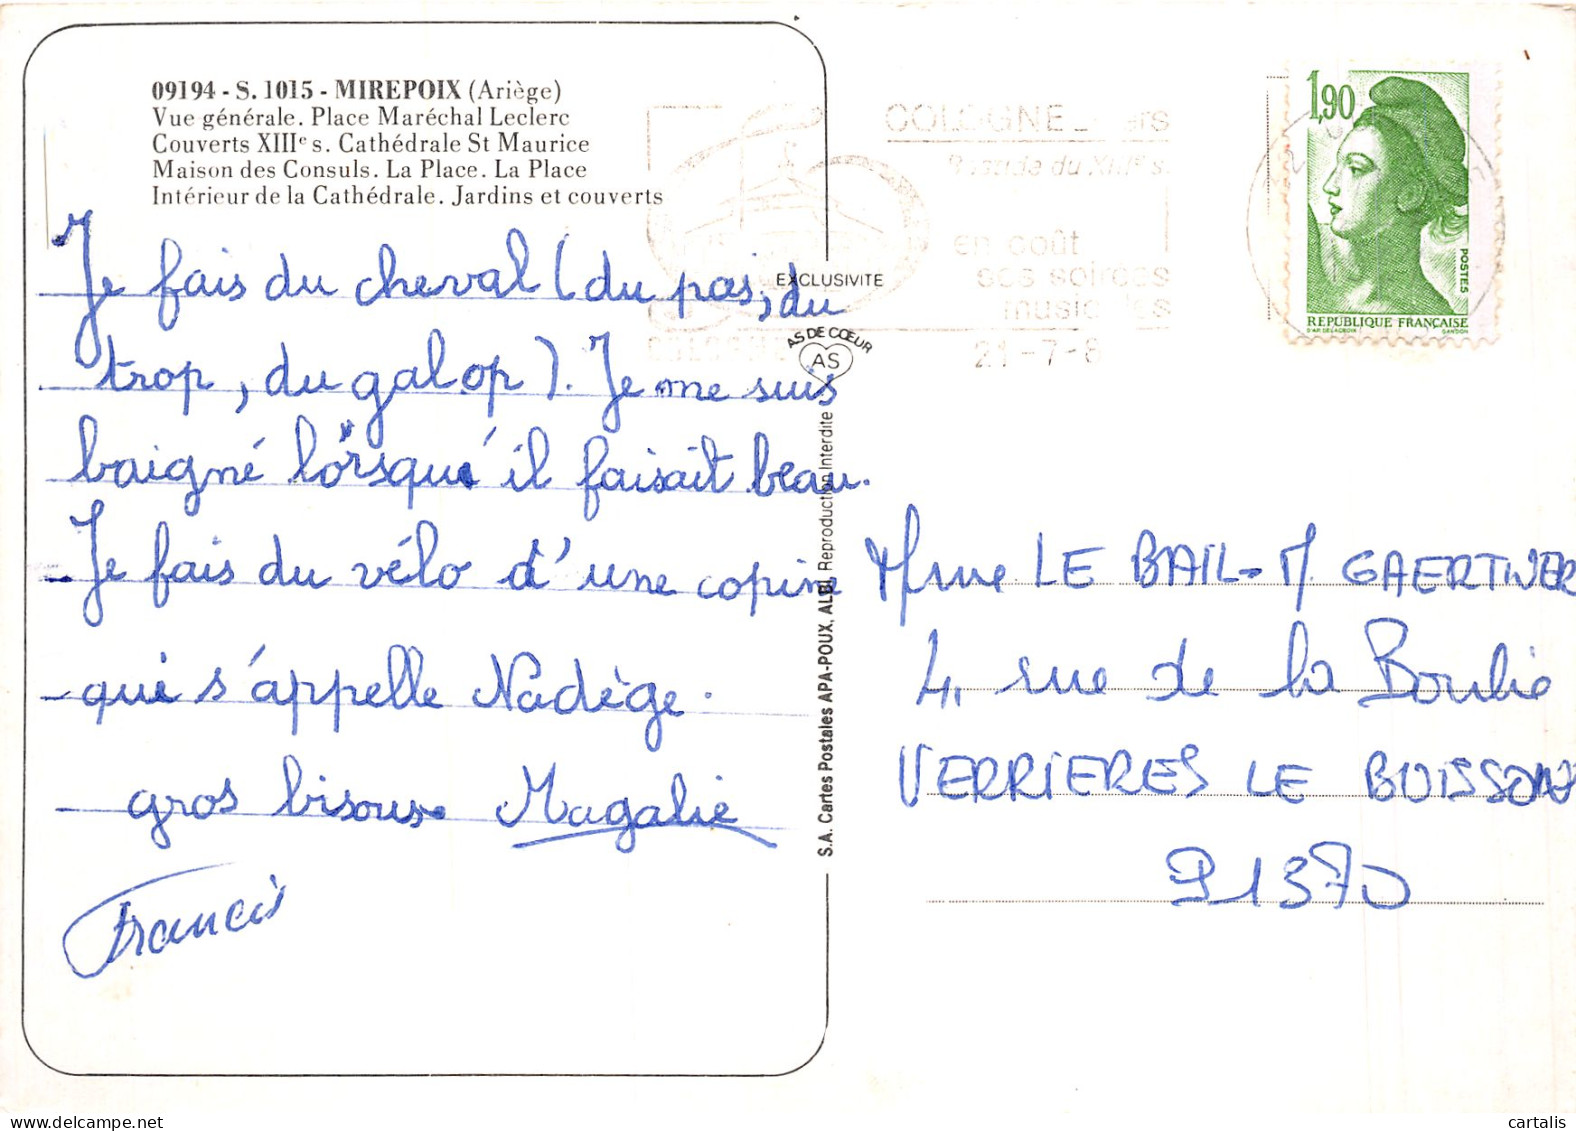 09194 - S. 1015 - MIREPOIX (Ariège)
Vue générale. Place Maréchal Leclerc
Couverts XIIIe s. Cathédrale St Maurice
Maison des Consuls. La Place. La Place
Intérieur de la Cathédrale. Jardins et couverts
Je fais du cheval (du pas, du
trop, du galop). Je me suis
baigné lorsqu' il faisait beau.
Je fais du vélo d'une copine
qui s'appelle Nadège.
gros bisous Magalie
Francis
EXCLUSIVITE
AS DE CŒUR
AS
S.A. Cartes Postales APA-POUX, ALBI. Reproduction Interdite
COLOGNE
du XIIIe s.
en août
ses soirées
musicales
21-7-8
1,90
POSTES
REPUBLIQUE FRANÇAISE
D'AP. DELACROIX GANDON
Mme LE BAIL-M GAERTNER
4, rue de la Boulie
VERRIERES LE BUISSON
91370
cartalis